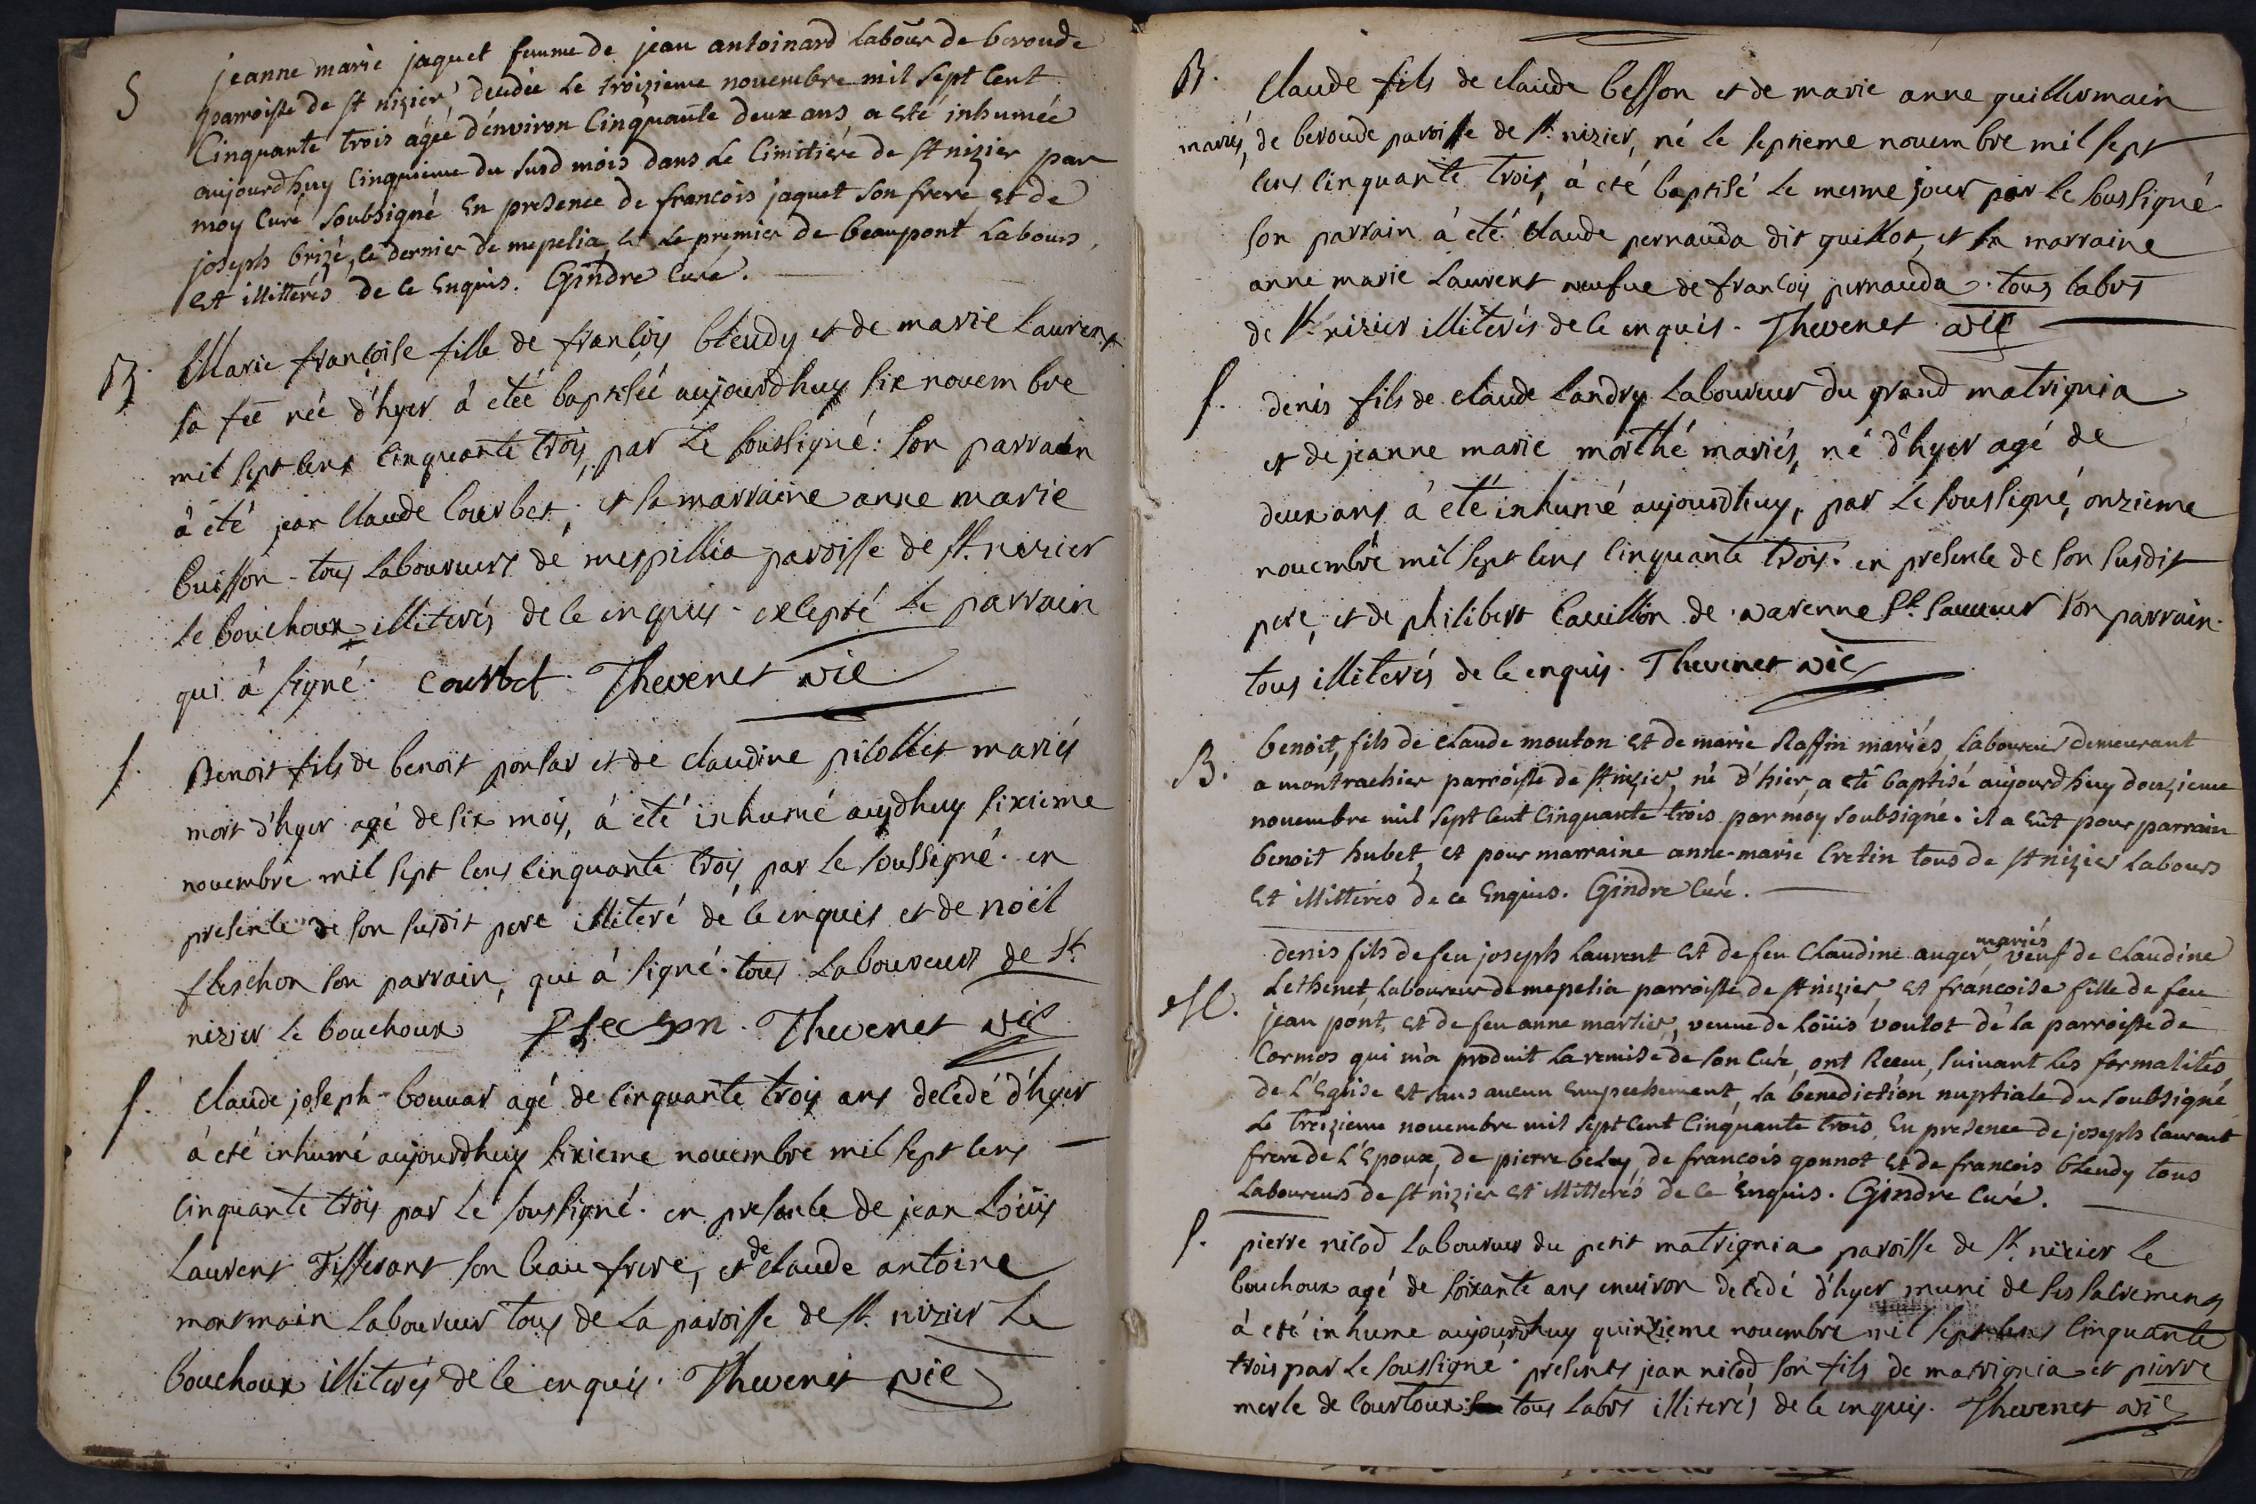 S
jeanne marie jaquet femme de jean antoinard labour de beroude
parroisse de st nizier, décédée le troizieme novembre mil sept cent
cinquante trois agée d'environ cinquante deux ans a eté inhumée
aujourdhuy cinquieme du susd mois dans le cimitiere de st nizier par
moy curé soubsigné en presence de francois jaquet son frere et de
joseph brizé, le dernier de mepelia, et le premier de beaupont labours,
et illitterés de ce enquis. Gindre curé.
B.
Marie françoise fille de françois bleudy et de marie laurent
sa fe née d'hyer à etée baptisée aujourdhuy six novembre
mil sept cent cinquante trois, par le soussigné: son parrain
à été jean claude courbet; et la marraine anne marie
buisson - tous laboureurs de mespillia paroisse de st. nizier
le bouchoux illiterés de ce enquis - excepté le parrain
qui à signé. courbet. Thevenet vic
S.
Benoit fils de benoit ponsar et de claudine picollet mariés
mort d'hyer agé de six mois, à été inhumé aujdhuy sixieme
novembre mil sept cens cinquante trois, par le soussigné. en
presence de son susdit pere illiteré de ce enquis et de noël
fléschon son parrain, qui à signé. tous laboureurs de st.
nizier le bouchoux Thevenet vic
S.
claude joseph bouvar agé de cinquante trois ans decédé d'hyer
à eté inhumé aujourdhuy sixieme novembre mil sept cens
cinquante trois par le soussigné. en presence de jean Loüis
Laurent Tisserant son beau frere, et de claude antoine
montmain laboureur tous de la paroisse de st. nizier le
bouchoux illiterés de ce enquis. Thevenet vic
B.
claude fils de claude besson et de marie anne guillermain
mariés, de beroude paroisse de st. nizier, né le septieme novembre mil sept
cens cinquante trois, à eté baptisé le mesme jour par le soussigné
son parrain à été claude pernauda dit guillot, et sa marraine
anne marie laurent veufve de françois pernauda. tous labrs
de st. nizier illiterés de ce enquis. Thevenet vic
S.
denis fils de claude landry laboureur du grand matrignia
et de jeanne marie morthé mariés, né d'hyer agé de
deux ans à été inhumé aujourdhuy, par le soussigné, onzieme
novembre mil sept cens cinquante trois. en presence de son susdit
pere, et de philibert cavillon de varenne st. sauveur son parrain.
tous illiterés de ce enquis. Thevenet vic
B.
benoit, fils de claude mouton et de marie Raffin mariés, laboureur demeurant
a montrachier parroisse de st nizier, né d'hier, a eté baptisé aujourdhuy douzieme
novembre mil sept cent cinquante trois par moy soubsigné. il a eut pour parrain
benoit hubet, et pour marraine anne-marie cretin tous de st nizier labours
et illitterés de ce enquis. Gindre curé.
M.
denis fils de feu joseph laurent et de feu claudine auger mariés, veuf de claudine
Lethenet, laboureur de mepelia parroisse de st nizier, et francoise fille de feu
jean pont, et de feu anne martier, veuve de Loüis voulot de la parroisse de
Cormos qui m'a produit la remise de son curé, ont Receu, suivant les formalités
de L'Eglise et sans aucun empeschement, la benediction nuptiale du soubsigné
le treizieme novembre mil sept cent cinquante trois. En presence de joseph laurent
frere de L'Epoux, de pierre beley, de francois gonnot et de francois bleudy tous
laboureurs de st nizier et illitterés de ce enquis. Gindre curé.
S.
pierre nicod laboureur du petit matrignia paroisse de st. nizier le
bouchoux agé de soixante ans environ decédé d'hyer muni de ses sacremens
à eté inhume aujourdhuy quinzieme novembre mil sept cens cinquante
trois par le soussigné. presents jean nicod son fils de matrignia et pierre
merle de courtoux tous labrs illiterés de ce enquis. Thevenet vic